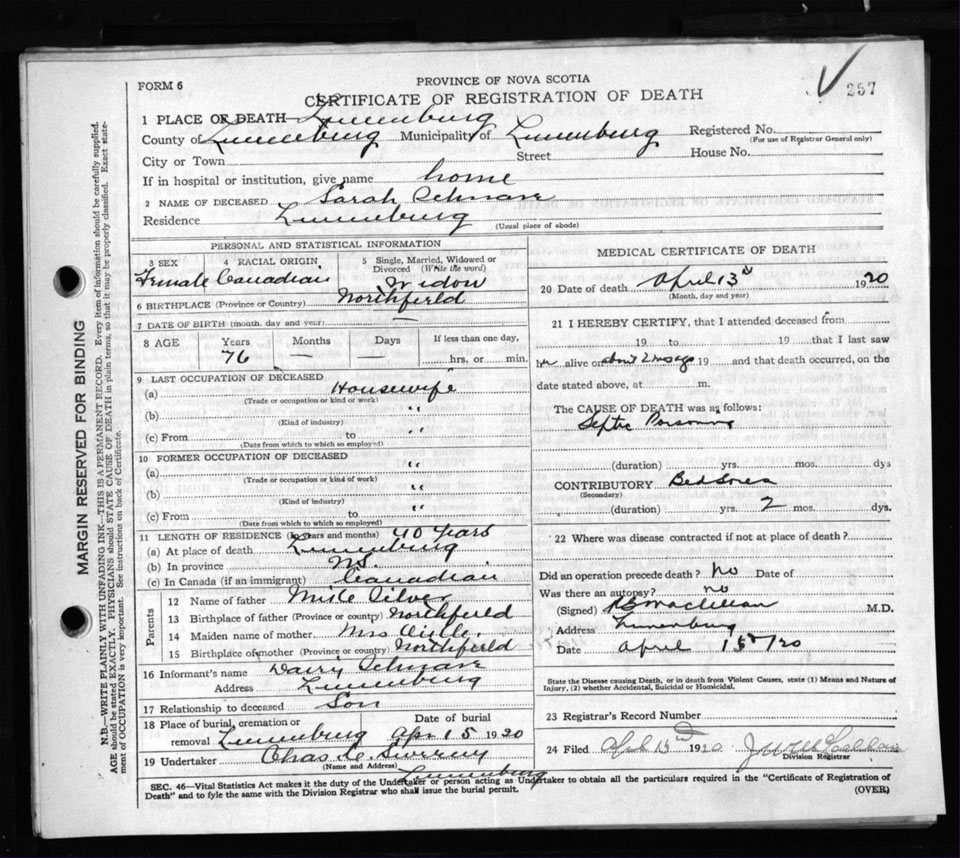 257
FORM 6
PROVINCE OF NOVA SCOTIA
CERTIFICATE OF REGISTRATION OF DEATH
1 PLACE OF DEATH— Lunenburg
County of Lunenburg Municipality of Lunenburg Registered No.
(For use of Registrar General only)
City or Town Street House No.
If in hospital or institution, give name home
2 NAME OF DECEASED Sarah
Residence Lunenburg
(Usual place of abode)
PERSONAL AND STATISTICAL INFORMATION
3 SEX 4 RACIAL ORIGIN 5 Single, Married, Widowed or Divorced (Write the word)
Female Canadian Widow
6 BIRTHPLACE (Province or Country) Northfield
7 DATE OF BIRTH (month, day and year) —
8 AGE Years Months Days If less than one day,
76 — — hrs. or min.
9 LAST OCCUPATION OF DECEASED
(a) Housewife
(Trade or occupation or kind or work)
(b) "
(Kind of industry)
(c) From to "
(Date from which to which so employed)
10 FORMER OCCUPATION OF DECEASED
(a) "
(Trade or occupation or kind of work)
(b) "
(Kind of industry)
(c) From to "
(Date from which to which so employed)
11 LENGTH OF RESIDENCE (In years and months) 40 Years
(a) At place of death Lunenburg
(b) In province NS.
(c) In Canada (if an immigrant) Canadian
Parents
12 Name of father Silver
13 Birthplace of father (Province or country) Northfield
14 Maiden name of mother Mrs
15 Birthplace of mother (Province or country) Northfield
16 Informant's name
Address Lunenburg
17 Relationship to deceased Son
18 Place of burial, cremation or removal Lunenburg Date of burial Apr 15 1920
19 Undertaker Chas
(Name and Address) Lunenburg
MEDICAL CERTIFICATE OF DEATH
20 Date of death April 13th 1920
(Month, day and year)
21 I HEREBY CERTIFY, that I attended deceased from
19 to 19 that I last saw
her alive on about 2 mos ago 19 and that death occurred, on the
date stated above, at m.
The CAUSE OF DEATH was as follows:
Septic Poisoning
(duration) yrs. mos. dys
CONTRIBUTORY Bed Sores
(Secondary)
(duration) yrs. 2 mos. dys.
22 Where was disease contracted if not at place of death?
Did an operation precede death? No Date of
Was there an autopsy? no
(Signed) M.D.
Address Lunenburg
Date April 15th/20
State the Disease causing Death, or in death from Violent Causes, state (1) Means and Nature of Injury, (2) whether Accidental, Suicidal or Homicidal.
23 Registrar's Record Number
24 Filed April 1920
Division Registrar
SEC. 46—Vital Statistics Act makes it the duty of the Undertaker or person acting as Undertaker to obtain all the particulars required in the "Certificate of Registration of
Death" and to fyle the same with the Division Registrar who shall issue the burial permit.
(OVER)
MARGIN RESERVED FOR BINDING
N.B.—WRITE PLAINLY WITH UNFADING INK—THIS IS A PERMANENT RECORD. Every item of information should be carefully supplied.
AGE should be stated EXACTLY. PHYSICIANS should STATE CAUSE OF DEATH in plain terms, so that it may be properly classified. Exact statement of OCCUPATION is very important. See instructions on back of Certificate.